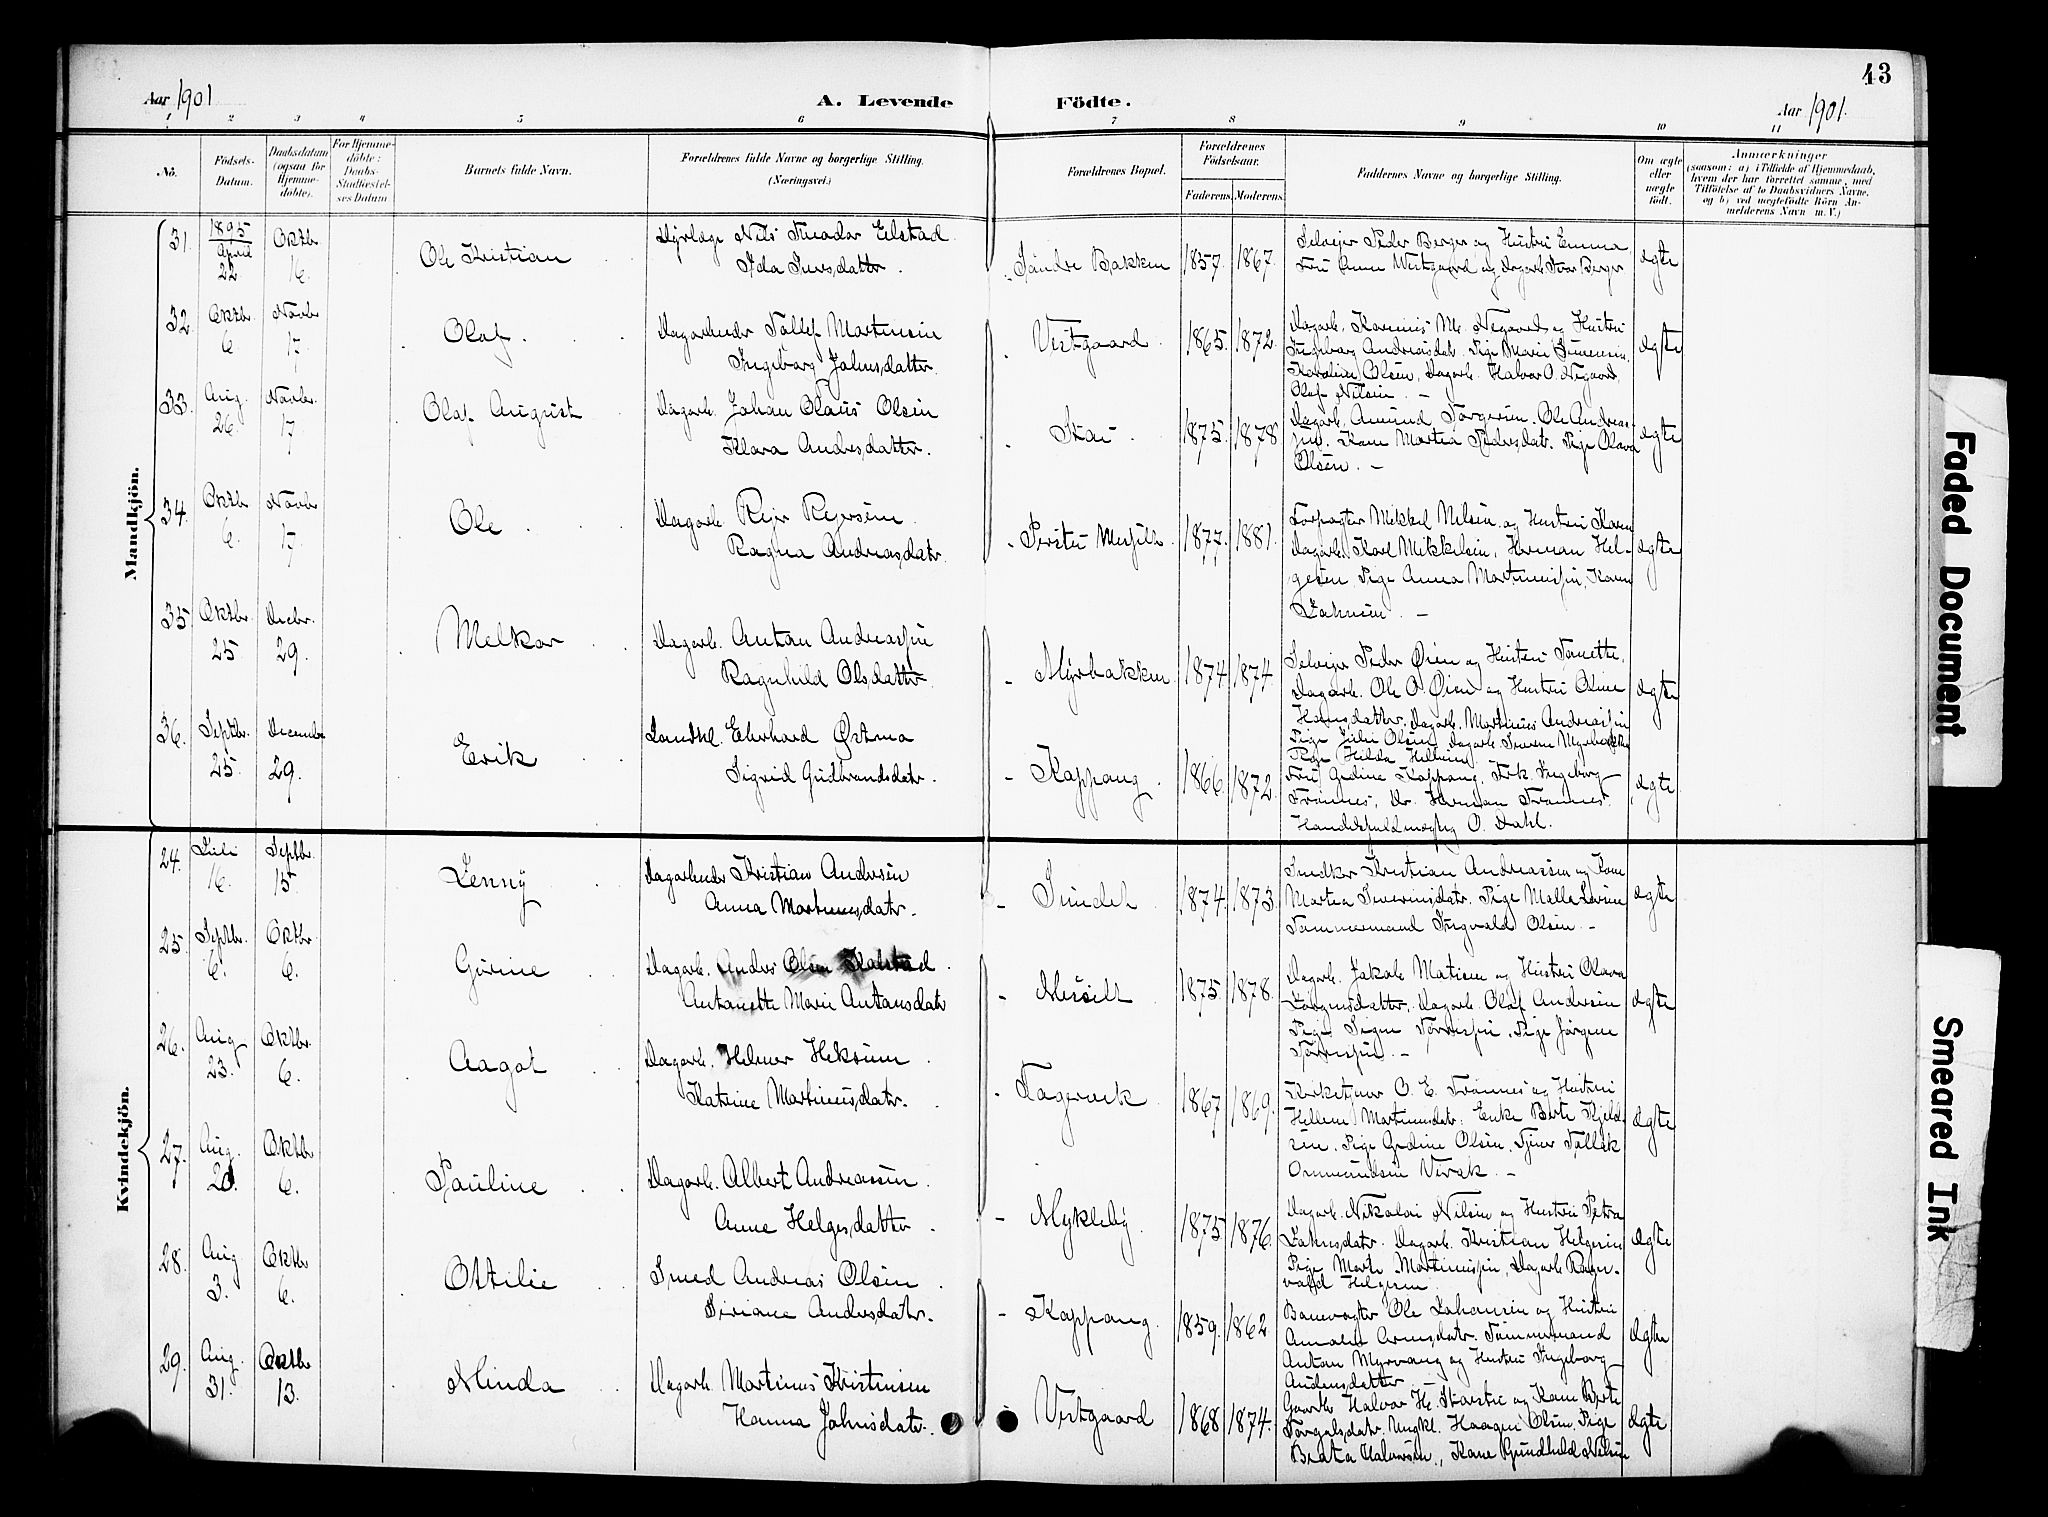 43
Aar 1901 A. Levende Födte. Aar 1901.
1 2 3 4 5 6 7 8 9 10 11
No. Födsels-Datum. Daabsdatum (ogsaa for Hjemmedöbte). For Hjemmedöbte: Daabs-Stadfæstelses Datum Barnets fulde Navn. Forældrenes fulde Navne og borgerlige Stilling. (Næringsvei.) Forældrenes Bopæl. Forældrenes Födselsaar. Faderens. Moderens. Faddernes Navne og borgerlige Stilling. Om ægte eller uægte födt. Anmærkninger (saasom: a) i Tilfælde af Hjemmedaab, hvem der har forrettet samme, med Tilföielse af to Daabsvidners Navne, og b) ved uægtefödte Börn Anmelderens Navn m. V.)
Mandkjön.
31. 1895 April 22 Oktbr. 16. Ole Kristian Dyrlæge Nils Theodor Elstad
Ida Iversdatter. Søndre Bakken 1857. 1867. Selveier Peder Berger og Hustru Emma,
Fru Anna Westgaard og Dagarb. Ivar Berger ægte
32. Oktbr. 6. Novbr. 17. Olaf. Dagarbeider Tollef Martinsen
Ingeborg Johnsdatter. Vestgaard. 1865. 1872. Dagarb. Karenus M. Negaard og Hustru
Ingeborg Andreasdatr. Pige Marie Simensen,
Karoline Olsen, Dagarb. Halvor O. Negaard,
Olaf Nilsen. – ægte
33. Aug. 26. Novbr. 17. Olaf August Dagarb. Johan Olaus Olsen
Klara Andersdatter. Stai. 1875. 1878 Dagarb. Amund Torgersen. Ole Andreas-
sen. Kone Martea Pedersdatr. Pige Olava
Olsen. – ægte
34. Oktbr. 6. Novbr. 17. Ole Dagarb. Reier Reiersen.
Ragna Andreasdatr. Messelt. 1877. 1881. Forpagter Mikkel Nilsen og Hustru Karen
Dagarb. Karl Mikkelsen, Herman Hel-
gesen. Pige Anna Martinussen, Karen
Johnsen. – ægte
35. Oktbr. 25. Decbr. 29. Melkor Dagarb. Anton Andreassen
Ragnhild Olsdatter. Myrbakken 1874. 1874. Selveier Peder Øien og Hustru Tonette,
Dagarb. Ole O. Øien og Hustru Oline
Hansdatter. Dagarb. Martinus Andreassen
Pige Julie Olsen Dagarb. Iveren Myrbakke
Pige Hilda Hellesen ægte
36. Septbr. 25. December 29. Erik. Landhl. Eberhard Østmo
Sigrid Gudbrandsdatr. Koppang. 1866. 1872. Fru Gurine Koppang, Frk. Ingeborg
Trønnes, Dr. Herman Trønnes.
Handelsfuldmægtig O. Dahl. ægte.
Kvindekjön.
24. Juli 16. Septbr. 15. Jenny Dagarbeider Kristian Andersen
Anna Martinusdatr. Sundet 1874. 1873. Snedker Kristian Andreassen og Kone
Martea Iversdatr. Pige Malla Larsen
Tømmermand Ingvald Olsen. – ægte
25. Septbr. 6. Oktbr. 6. Gurine Dagarb. Anders Olsen Kolstad.
Antonette Marie Antonsdatr Messelt 1875. 1878. Dagarb. Jakob Matisen og Hustru Olava
Jørgensdatter, Dagarb. Olaf Andersen
Pige Signe Tørressen, Pige Jørgine
Tørressen. – ægte
26. Aug 23. Oktbr. 6. Aagot Dagarb. Helmer Heksum.
Katrine Martinusdatr. Fagervik 1867 1869. Kirketjener O. E. Trønnes og Hustru
Hellene Martinusdatr. Enke Berte Kjeld-
sen. Pige Gurine Olsen. Tjener Tollak
Ommundsen Virak. – ægte
27. Aug. 20. Oktbr. 6. Pauline Dagarb. Albert Andreassen.
Anne Helgesdatter. Mykleby 1875 1876. Dagarb. Nikolai Nilsen og Hustru Petra
Johnsdatr. Dagarb. Kristian Helgesen
Pige Marte Martinussen, Dagarb. Ragn-
vald Helgesen ægte
28. Aug 3. Oktbr 6. Ottilie Smed Andreas Olsen.
Siriane Andersdatr. Koppang. 1859. 1862. Banevogter Ole Johansen og Hustru
Amalie Arnesdatr. Tømmermand
Anton Myrvang og Hustru Ingeborg
Andersdatter ægte
29. Aug. 31. Oktbr 13. Minda Dagarb. Martinus Kristensen
Hanna Johnsdatr. Vestgaard 1868. 1874. Gaardb. Halvor H. Storstu og Kone Berte
Torgalsdatr. Ungkl. Haagen Olsen. Pige
Beata Halvorsen., Kone Gundhild Nilsen ægte
Faded Document
Smeared Ink